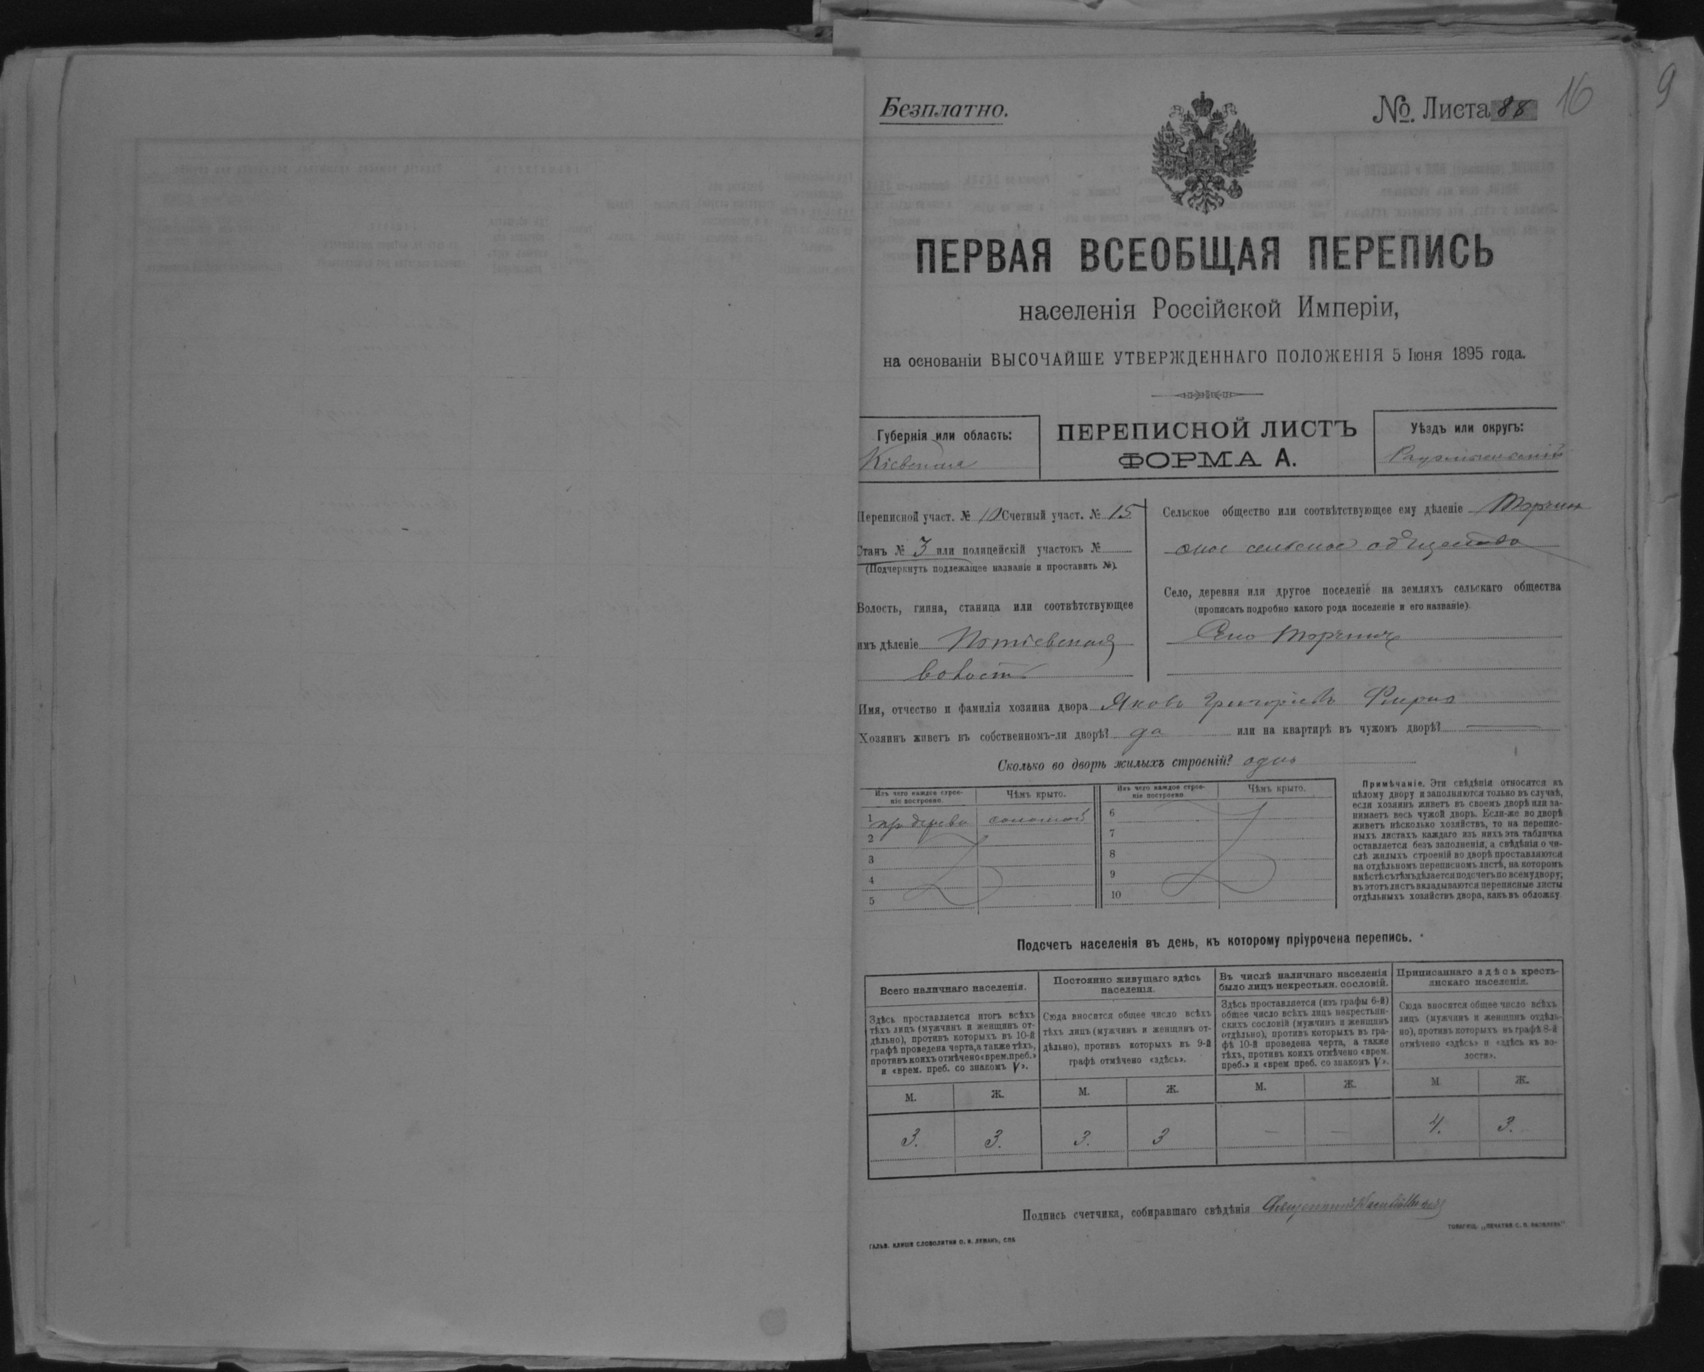 Безплатно.
№. Листа 88
16
9
ПЕРВАЯ ВСЕОБЩАЯ ПЕРЕПИСЬ
населенія Россійской Имперіи,
на основаніи ВЫСОЧАЙШЕ УТВЕРЖДЕННАГО ПОЛОЖЕНІЯ 5 Іюня 1895 года.
Губернія или область:
Кіевская
ПЕРЕПИСНОЙ ЛИСТЪ
ФОРМА А.
Уѣздъ или округъ:
Переписной участ. № 10 Счетный участ. № 15
Станъ № 3 или полицейскій участокъ №
(Подчеркнуть подлежащее названіе и проставить №).
Волость, гмина, станица или соотвѣтствующее
имъ дѣленіе Потіевская
волость
Сельское общество или соотвѣтствующее ему дѣленіе Торчин
ское сельское общество
Село, деревня или другое поселеніе на земляхъ сельскаго общества
(прописать подробно какого рода поселеніе и его названіе).
Село Торчинъ
Имя, отчество и фамилія хозяина двора Яковъ Григоріевъ
Хозяинъ живетъ въ собственномъ-ли дворѣ? да или на квартирѣ въ чужомъ дворѣ?
Сколько во дворѣ жилыхъ строеній? одно
Изъ чего каждое строе-
ніе построено.
Чѣмъ крыто.
1 дерева соломой
2
3
4
5
Изъ чего каждое строе-
ніе построено.
Чѣмъ крыто.
6
7
8
9
10
Примѣчаніе. Эти свѣдѣнія относятся къ
цѣлому двору и заполняются только въ случаѣ,
если хозяинъ живетъ въ своемъ дворѣ или за-
нимаетъ весь чужой дворъ. Если-же во дворѣ
живетъ нѣсколько хозяйствъ, то на перепис-
ныхъ листахъ каждаго изъ нихъ эта табличка
оставляется безъ заполненія, а свѣдѣнія о чи-
слѣ жилыхъ строеній во дворѣ проставляются
на отдѣльномъ переписномъ листѣ, на которомъ
вмѣстѣ съ тѣмъ дѣлается подсчетъ по всему двору;
въ этотъ листъ вкладываются переписные листы
отдѣльныхъ хозяйствъ двора, какъ въ обложку.
Подсчетъ населенія въ день, къ которому пріурочена перепись.
Всего наличнаго населенія.
Здѣсь проставляется итогъ всѣхъ
тѣхъ лицъ (мужчинъ и женщинъ от-
дѣльно), противъ которыхъ въ 10-й
графѣ проведена черта, а также тѣхъ,
противъ коихъ отмѣчено «врем. преб.»
и «врем. преб. со знакомъ V».
М. Ж.
3. 3.
Постоянно живущаго здѣсь
населенія.
Сюда вносится общее число всѣхъ
тѣхъ лицъ (мужчинъ и женщинъ от-
дѣльно), противъ которыхъ въ 9-й
графѣ отмѣчено «здѣсь».
М. Ж.
3. 3
Въ числѣ наличнаго населенія
было лицъ некрестьян. сословій.
Здѣсь проставляется (изъ графы 6-й)
общее число всѣхъ лицъ некрестьян-
скихъ сословій (мужчинъ и женщинъ
отдѣльно), противъ которыхъ въ гра-
фѣ 10-й проведена черта, а также
тѣхъ, противъ коихъ отмѣчено «врем.
преб.» и «врем преб. со знакомъ V».
М. Ж.
— —
Приписаннаго здѣсь кресть-
янскаго населенія.
Сюда вносится общее число всѣхъ
лицъ (мужчинъ и женщинъ отдѣль-
но), противъ которыхъ въ графѣ 8-й
отмѣчено «здѣсь» и «здѣсь въ во-
лости».
М. Ж.
4. 3.
Подпись счетчика, собиравшаго свѣдѣнія
ГАЛЬВ. КЛИШЕ СЛОВОЛИТНИ О. И. ЛЕМАНЪ, СПБ
ТОВАРИЩ. „ПЕЧАТНЯ С. П. ЯКОВЛЕВА"